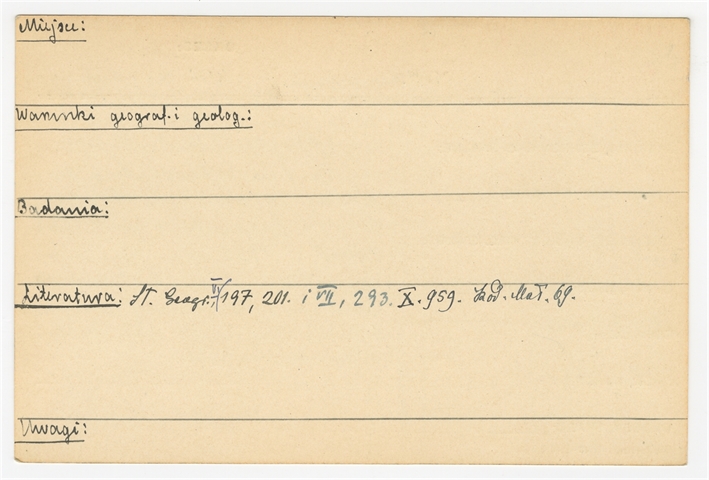 Miejsce:
Warunki geograf. i geolog.:
Badania:
Literatura: St. Geogr. VI/197, 201. i VII, 293. X. 959. Kod. Mał. 69.
Uwagi: